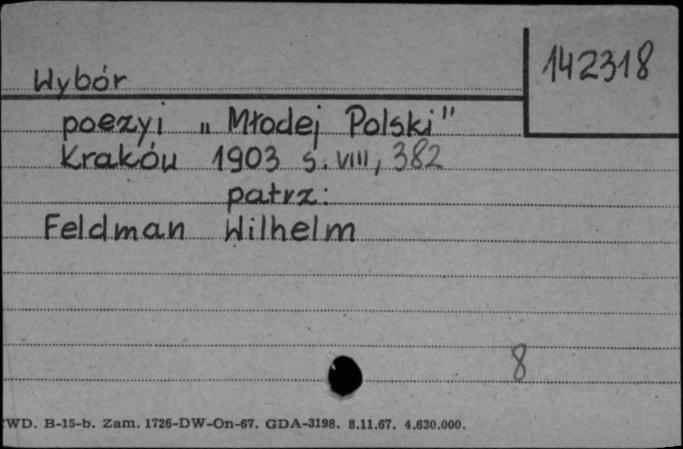 142318
Wybór
poezyi „Młodej Polski"
Kraków 1903 s. VIII, 382
patrz:
Feldman Wilhelm
8
WD. B-15-b. Zam. 1726-DW-On-67. GDA-3198. 8.11.67. 4.630.000.